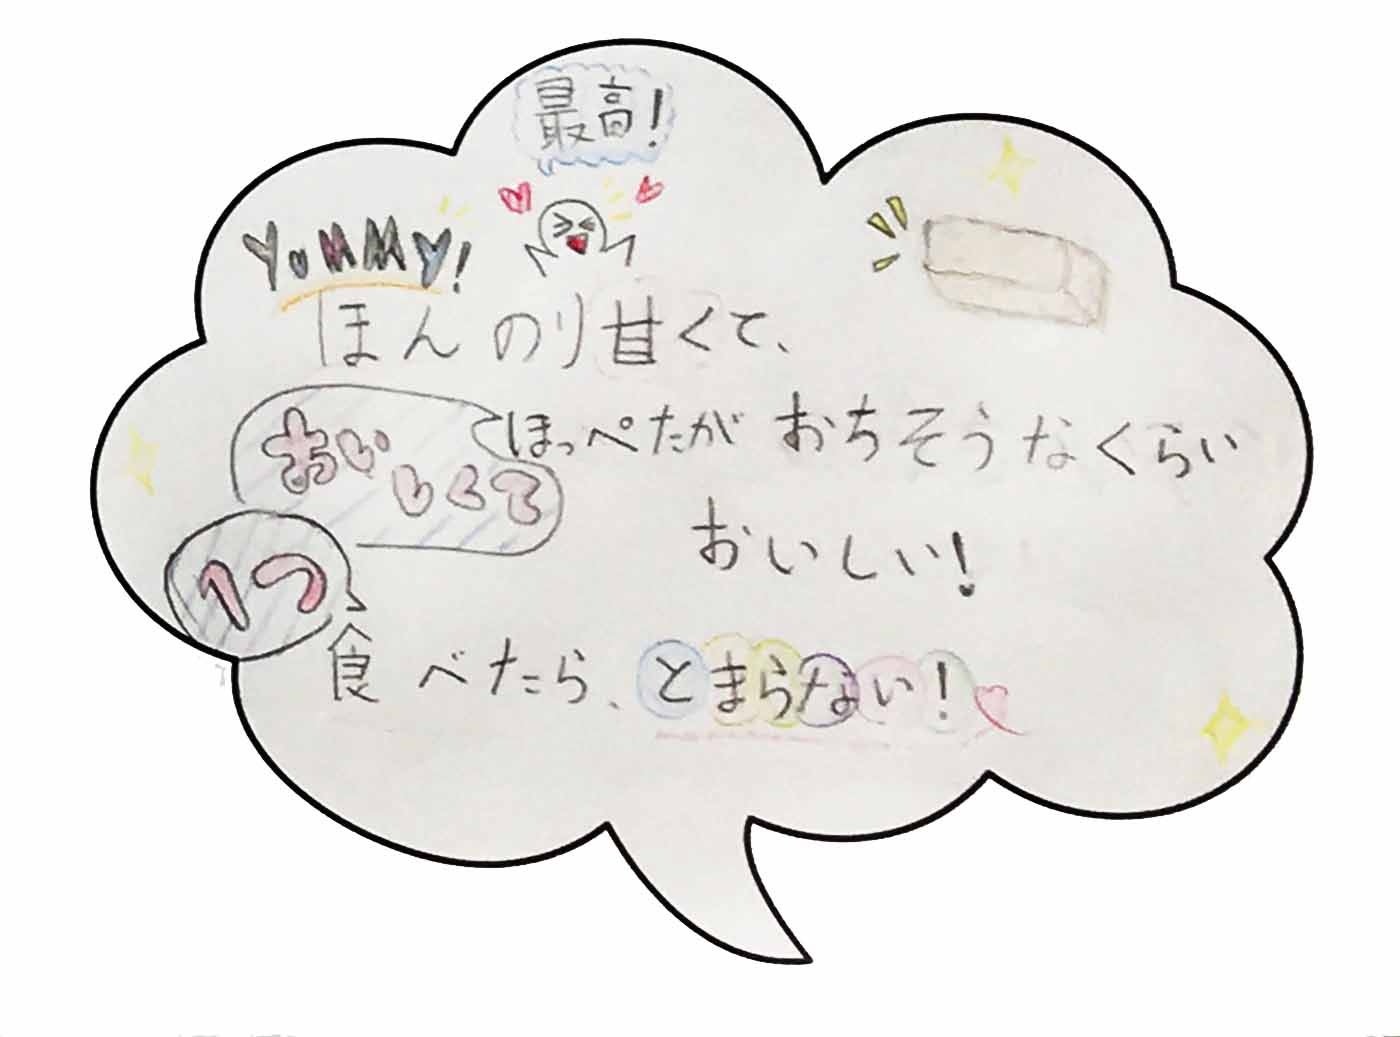 最高!
YUMMY!
ほんのり甘くて、
ほっぺたがおちそうなくらい
おいしくて
おいしい!
1つ
食べたら、とまらない!